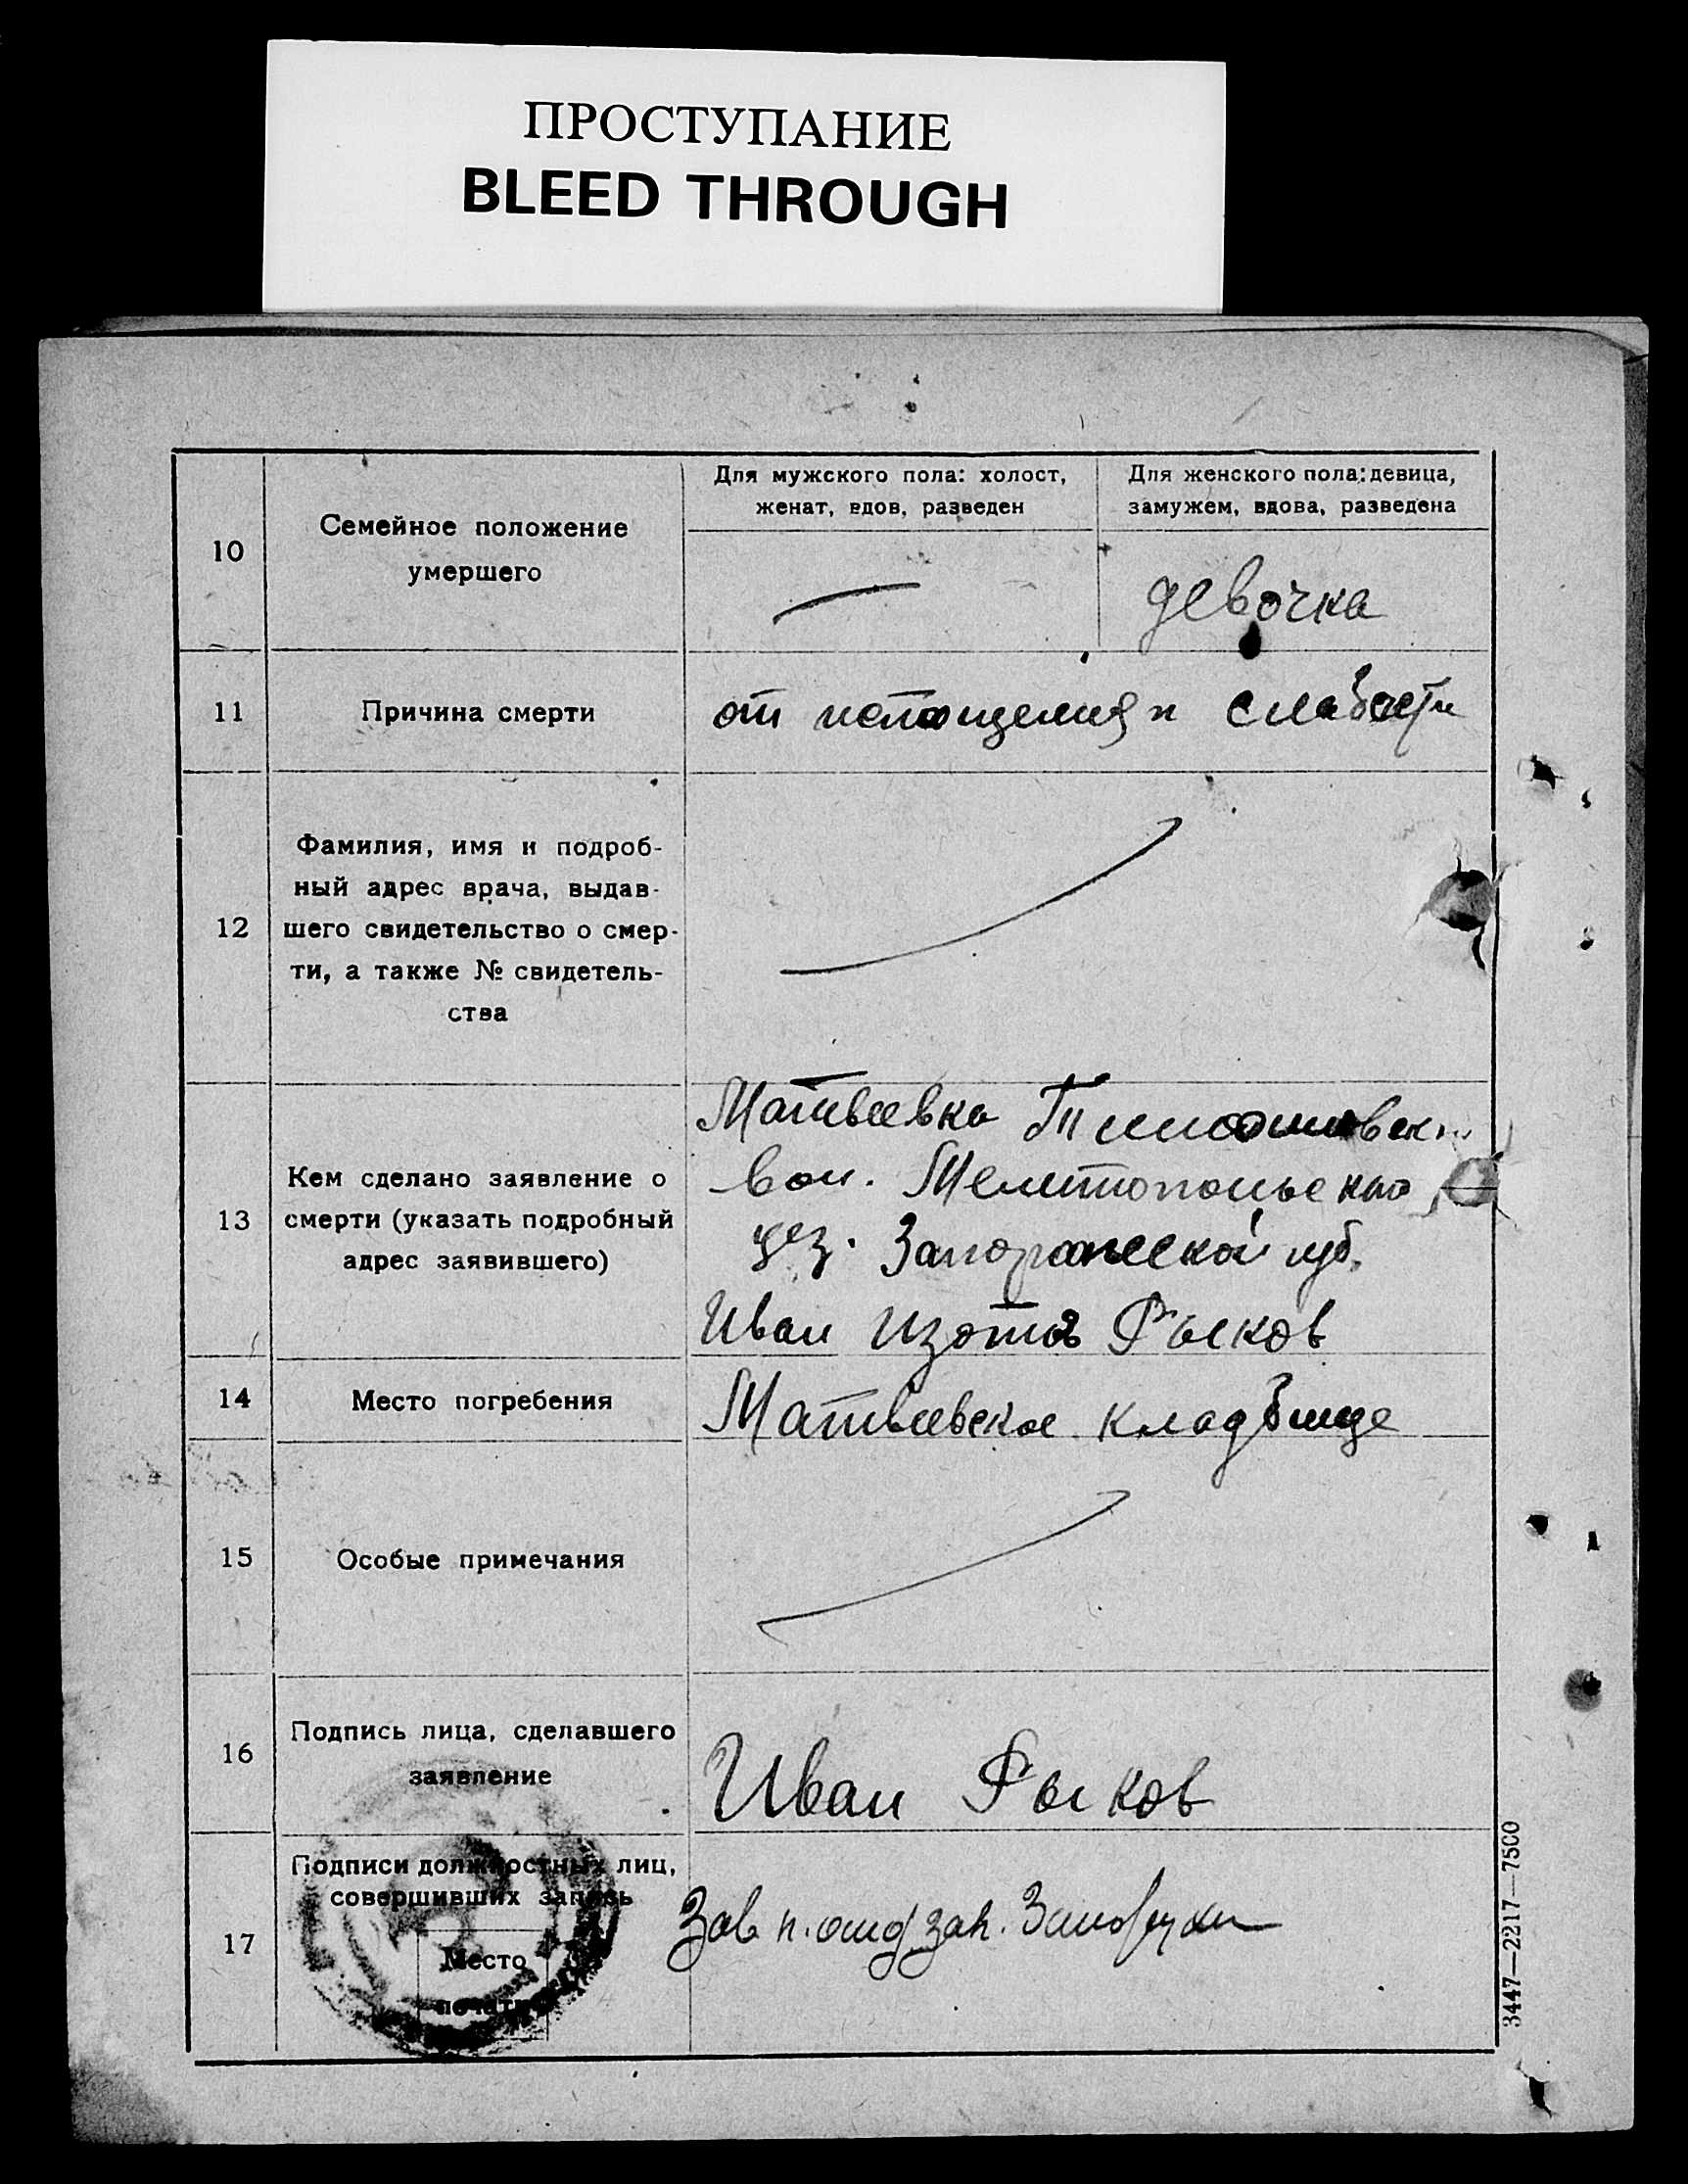 ПРОСТУПАНИЕ
BLEED THROUGH
10
Семейное положение
умершего
Для мужского пола: холост,
женат, вдов, разведен
Для женского пола: девица,
замужем, вдова, разведена
девочка
11
Причина смерти
от истощения и слабости
12
Фамилия, имя и подроб-
ный адрес врача, выдав-
шего свидетельство о смер-
ти, а также № свидетель-
ства
13
Кем сделано заявление о
смерти (указать подробный
адрес заявившего)
Матвеевка
вол. Мелитопольского
уез. Запорожской губ.
Иван Изотов Рыков
14
Место погребения
Матвеевское кладбище
15
Особые примечания
16
Подпись лица, сделавшего
заявление
Иван Рыков
17
Подписи должностных лиц,
совершивших запись
Место
печати
Зав п. отд зап.
3447—2217—7500